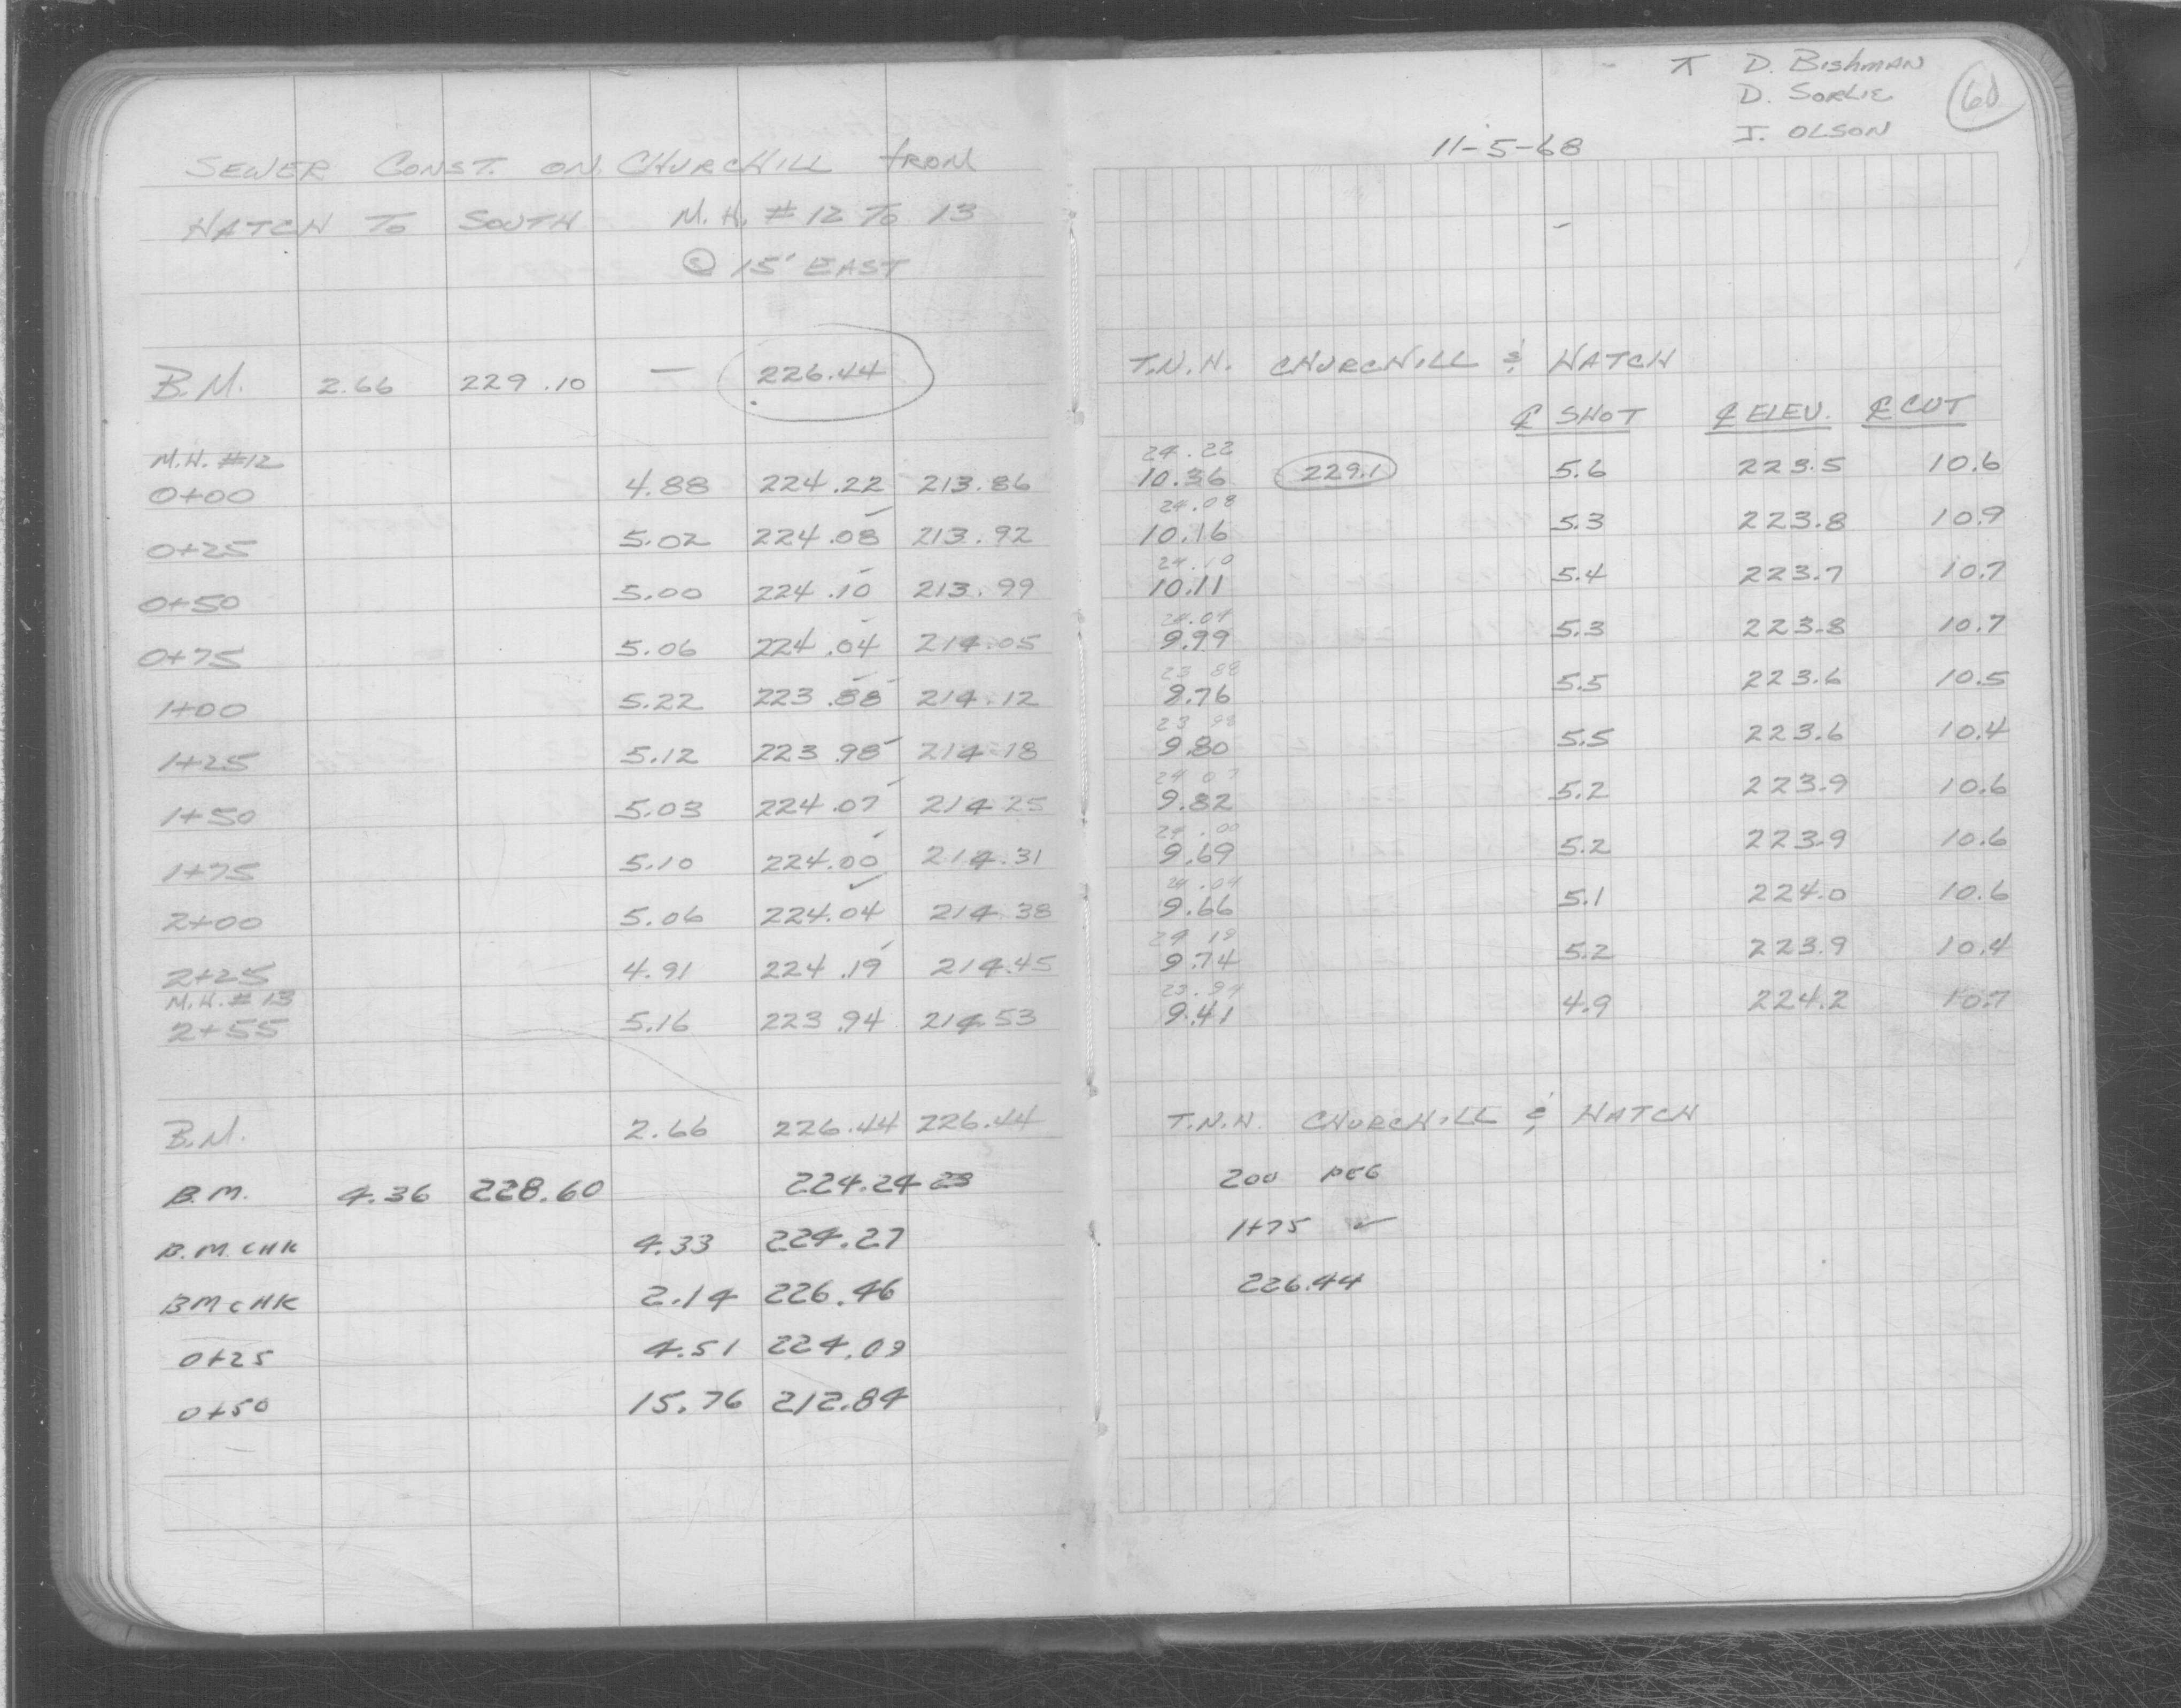 SEWER CONST. ON CHURCHILL FROM
HATCH TO SOUTH M.H. #12 TO 13
@ 15' EAST
B.M. 2.66 229.10 — 226.44
M.H. #12
0+00 4.88 224.22 213.86
0+25 5.02 224.08 213.92
0+50 5.00 224.10 213.99
0+75 5.06 224.04 214.05
1+00 5.22 223.88 214.12
1+25 5.12 223.98 214.18
1+50 5.03 224.07 214.25
1+75 5.10 224.00 214.31
2+00 5.06 224.04 214.38
2+25 4.91 224.19 214.45
M.H. #13
2+55 5.16 223.94 214.53
B.M. 2.66 226.44 226.44
B.M. 4.36 228.60 224.24 23
B.M. CHK 4.33 224.27
BM CHK 2.14 226.46
0+25 4.51 224.09
0+50 15.76 212.84
⊼ D. BISHMAN
D. SORLIE
J. OLSON
60
11-5-68
T.N.H. CHURCHILL & HATCH
℄ SHOT ℄ ELEV. ℄ CUT
24.22
10.36 229.1 5.6 223.5 10.6
24.08
10.16 5.3 223.8 10.9
24.10
10.11 5.4 223.7 10.7
24.04
9.99 5.3 223.8 10.7
23 88
9.76 5.5 223.6 10.5
23 98
9.80 5.5 223.6 10.4
24 07
9.82 5.2 223.9 10.6
24.00
9.69 5.2 223.9 10.6
24.04
9.66 5.1 224.0 10.6
24 19
9.74 5.2 223.9 10.4
23.94
9.41 4.9 224.2 10.7
T.N.H. CHURCHILL & HATCH
200 PEG
1+75 ✓
226.44